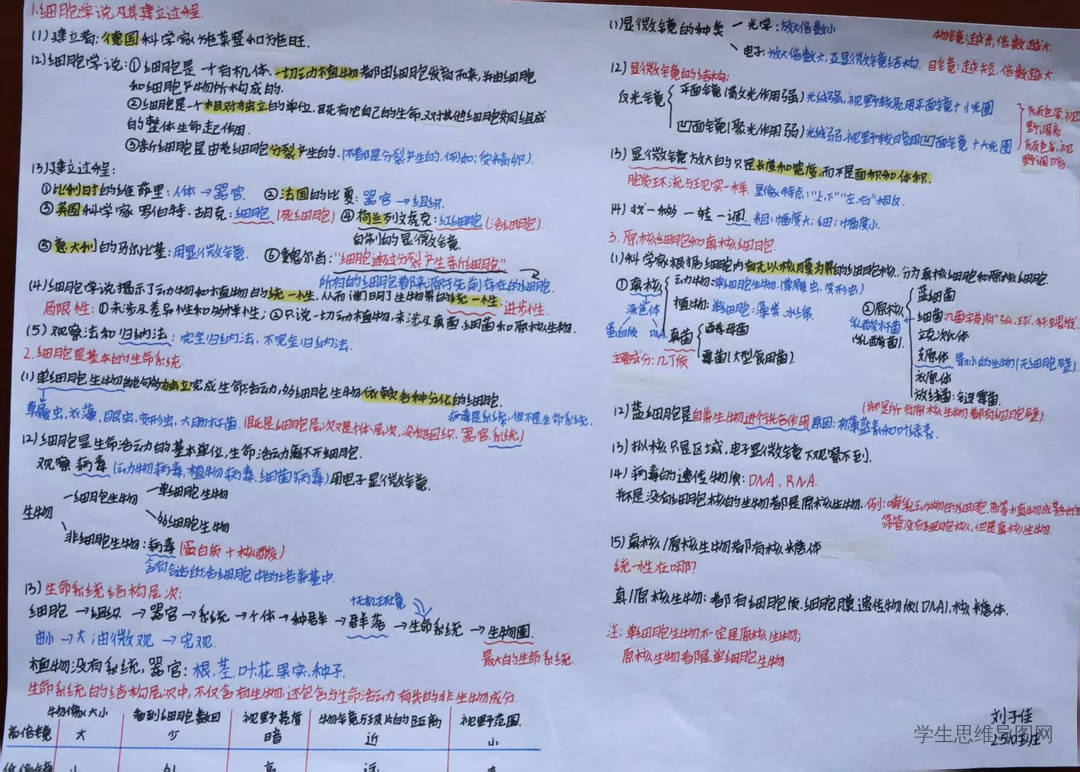 1.细胞学说及其建立过程.
(1)建立者:德国科学家施莱登和施旺.
(2)细胞学说:①细胞是一个有机体,一切动植物都由细胞发育而来,并由细胞
和细胞产物所构成的.
②细胞是一个相对独立的单位,既有它自己的生命,又对其他细胞共同组成
的整体生命起作用.
③新细胞是由老细胞分裂产生的.(不都是分裂产生的.例如:受精卵).
(3)建立过程:
①比利时的维萨里:人体→器官. ②法国的比夏:器官→组织.
③英国科学家罗伯特·胡克:细胞(死细胞) ④荷兰列文虎克:红细胞(活细胞).
自制的显微镜
⑤意大利的马尔比基:用显微镜. ⑥魏尔肖:"细胞通过分裂产生新细胞"
所有的细胞都来源于先前存在的细胞
(4)细胞学说揭示了动物和植物的统一性,从而阐明了生物界的统一性.
局限性:①未涉及差异性和多样性;②只说一切动植物,未涉及真菌细菌和原核生物. 进步性.
(5)观察法和归纳法:完全归纳法,不完全归纳法.
2.细胞是基本的生命系统.
(1)单细胞生物能够独立完成生命活动,多细胞生物依赖各种分化的细胞.
病毒是系统,但不是生命系统.
草履虫、衣藻、眼虫、变形虫、大肠杆菌(既是细胞层次又是个体层次,没有组织、器官、系统)
(2)细胞是生命活动的基本单位,生命活动离不开细胞.
观察病毒(动物病毒,植物病毒,细菌病毒)用电子显微镜.
生物
细胞生物
单细胞生物
多细胞生物
非细胞生物:病毒(蛋白质+核酸)
含有合适的活细胞中的培养基中.
(3)生命系统结构层次:
+无机环境
细胞→组织→器官→系统→个体→种群→群落→生命系统→生物圈.
由小→大 由微观→宏观. 最大的生命系统.
植物没有系统,器官:根、茎、叶、花、果实、种子.
生命系统的结构层次中,不仅含有生物,还包含与生命活动有关的非生物成分.
物像大小 看到细胞数目 视野亮度 物镜与玻片的距离 视野范围.
高倍镜 大 少 暗 近 小
低倍镜 小 多 亮 远 大
(1)显微镜的种类
光学:放大倍数小
电子:放大倍数大,亚显微镜结构.
物镜:越长,倍数越大.
目镜:越短,倍数越大.
(2)显微镜的结构:
反光镜
平面镜(散光作用强)光线强,视野较亮用平面镜+小光圈
凹面镜(聚光作用弱)光线弱,视野较暗用凹面镜+大光圈
(3)显微镜放大的只是长度和宽度,而不是面积和体积.
胞质环流与现实一样. 显像特点:"上、下""左、右"相反.
(4)找一移一转一调. 粗:幅度大;细:幅度小.
3.原核细胞和真核细胞.
(1)科学家根据细胞内有无以核膜为界的细胞核,分为真核细胞和原核细胞.
①真核
染色体
蛋白质 DNA
动物:单细胞生物.(草履虫、变形虫)
植物:单细胞:藻类、水绵.
真菌
酵母菌
霉菌(大型食用菌).
主要成分:几丁质
②原核
乳酸杆菌
(乳酸菌).
蓝细菌
细菌
立克次氏体
支原体 最小的生物(无细胞壁)
衣原体
放线菌:链霉菌.
(并不是所有原核生物都有细胞壁)
(2)蓝细胞是自养生物进行光合作用 原因:有藻蓝素和叶绿素.
(3)拟核只是区域,电子显微镜下观察不到.
(4)病毒的遗传物质:DNA、RNA.
并不是没有细胞核的生物都是原核生物.例:哺乳动物的红细胞,高等植物成熟的
筛管没有细胞核,但是真核生物.
(5)真核/原核生物都有核糖体
统一性在哪?
真/原核生物:都有细胞质、细胞膜、遗传物质(DNA)、核糖体.
注:单细胞生物不一定是原核生物;
原核生物都是单细胞生物.
刘子佳
2503班
学生思维导图网